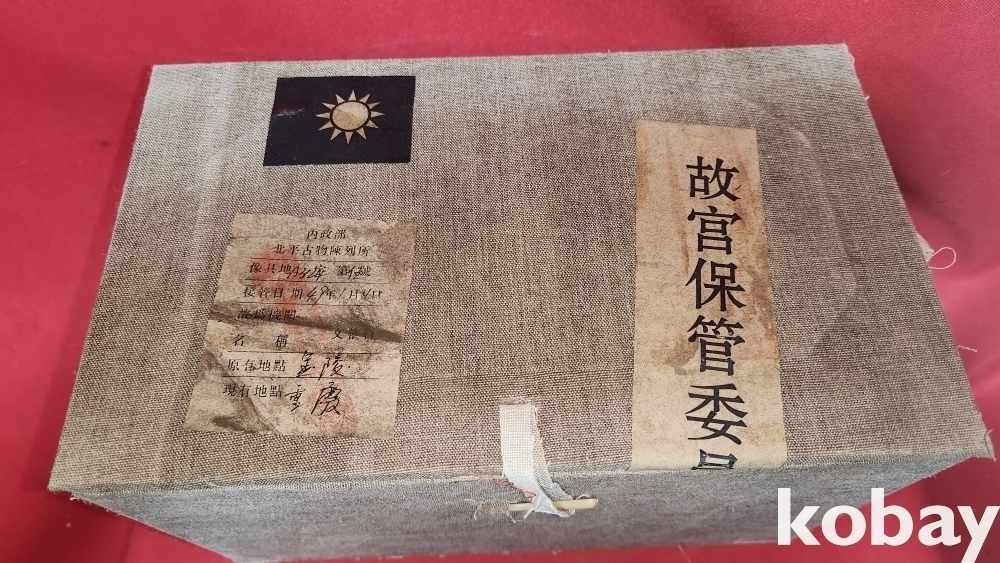 內政部
北平古物陳列所
傢具地 第 號
接管日期 49年1月8日
故舊機關
名稱
原存地點 金陵
現存地點 重慶
故宮保管委員
kobay